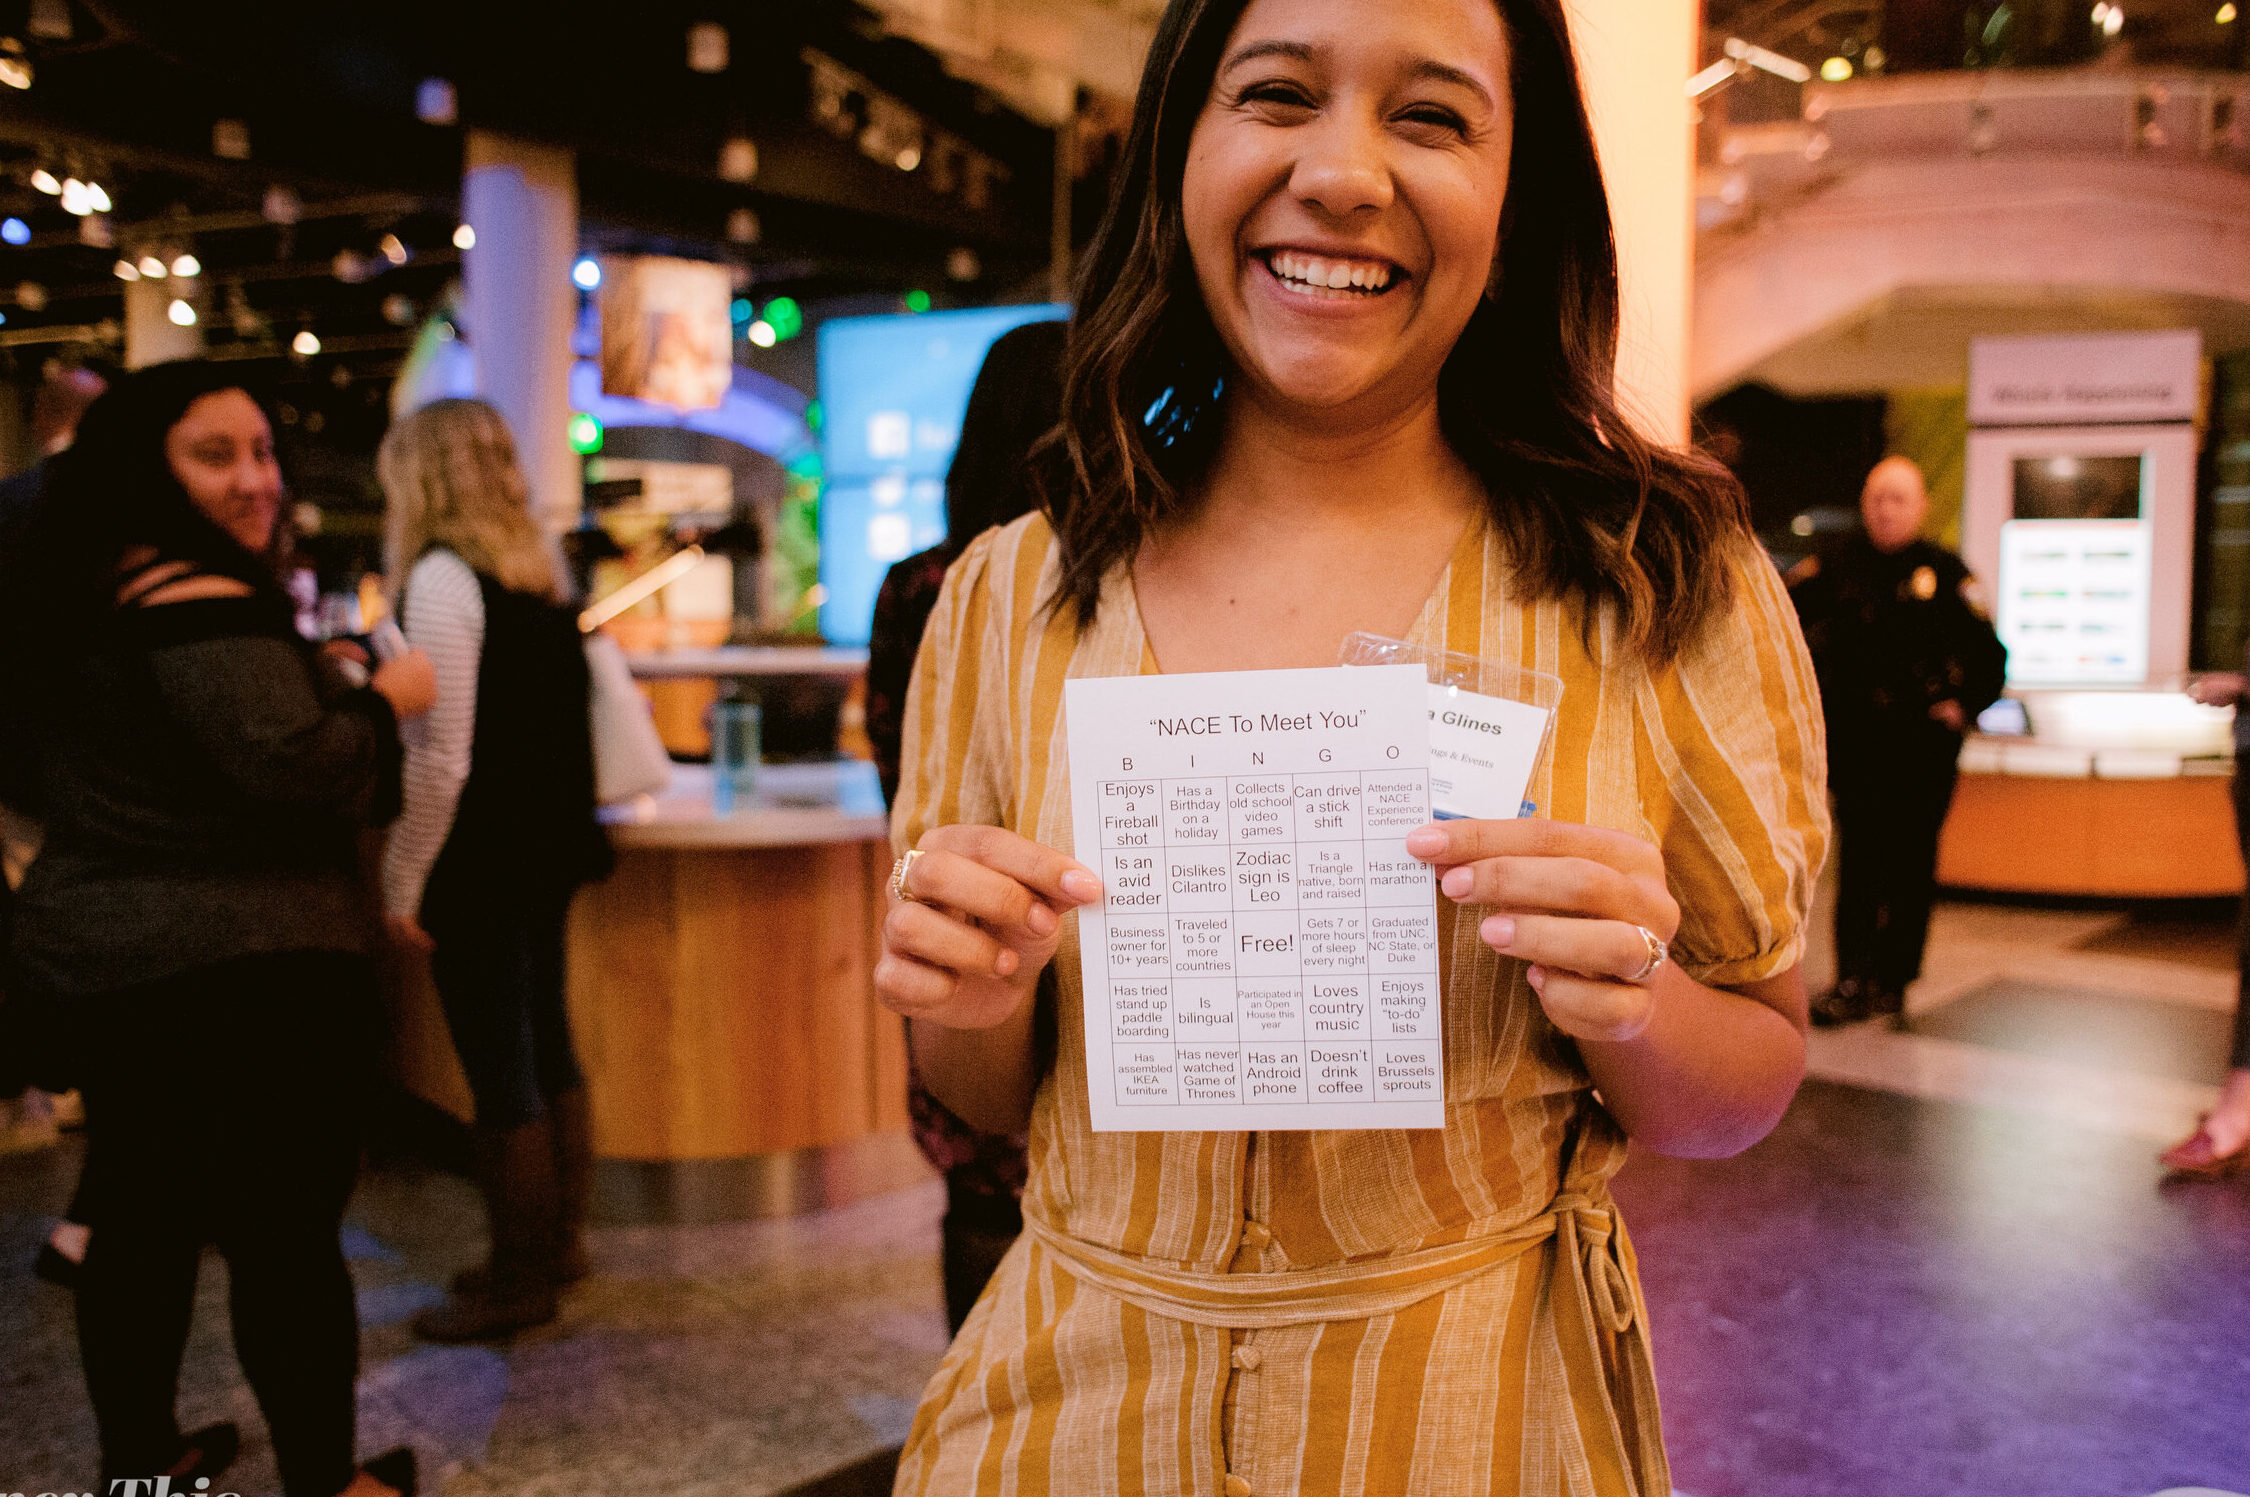 "NACE To Meet You"
B I N G O
Enjoys
a
Fireball
shot
Has a
Birthday
on a
holiday
Collects
old school
video
games
Can drive
a stick
shift
Attended a
NACE
Experience
conference
Is an
avid
reader
Dislikes
Cilantro
Zodiac
sign is
Leo
Is a
Triangle
native, born
and raised
Has ran a
marathon
Business
owner for
10+ years
Traveled
to 5 or
more
countries
Free!
Gets 7 or
more hours
of sleep
every night
Graduated
from UNC,
NC State, or
Duke
Has tried
stand up
paddle
boarding
Is
bilingual
Participated in
an Open
House this
year
Loves
country
music
Enjoys
making
"to-do"
lists
Has
assembled
IKEA
furniture
Has never
watched
Game of
Thrones
Has an
Android
phone
Doesn't
drink
coffee
Loves
Brussels
sprouts
a Glines
ngs & Events
This